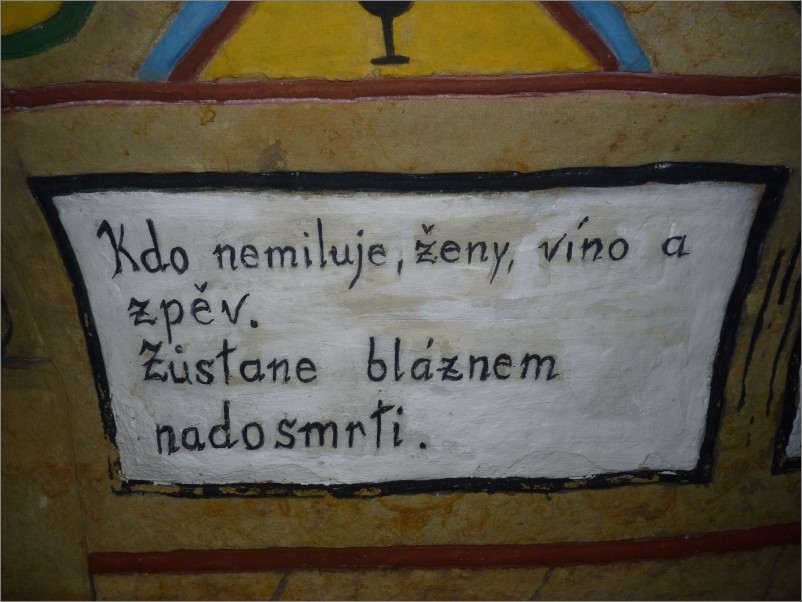 Kdo nemiluje, ženy, víno a
zpěv.
Zůstane bláznem
nadosmrti.